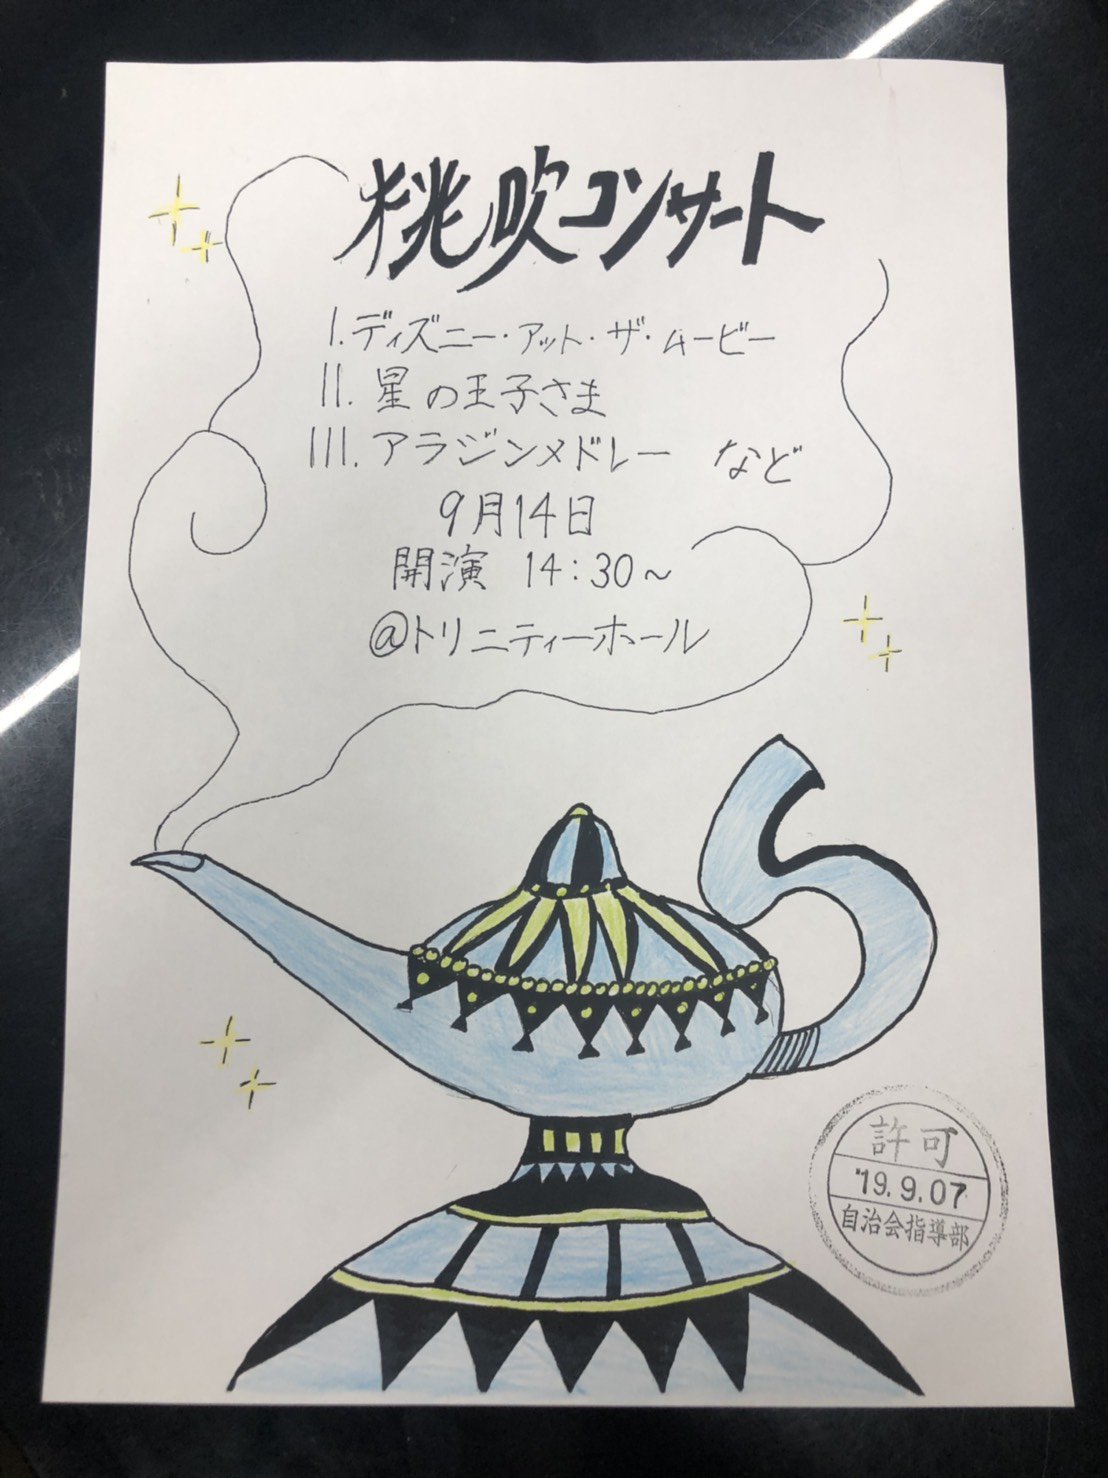 桃吹コンサート
I.ディズニー・アット・ザ・ムービー
II.星の王子さま
III.アラジンメドレー など
9月14日
開演 14:30~
@トリニティーホール
許可
'19.9.07
自治会指導部